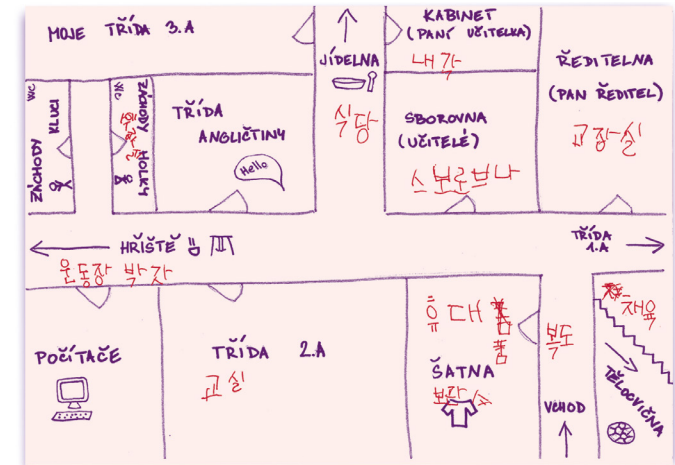 MOJE TŘÍDA 3.A
JÍDELNA
식당
KABINET
(PANÍ UČITELKA)
내각
ŘEDITELNA
(PAN ŘEDITEL)
교장실
WC
ZÁCHODY KLUCI
WC
ZÁCHODY HOLKY
TŘÍDA
ANGLIČTINY
Hello
SBOROVNA
(UČITELÉ)
스보로브나
HŘIŠTĚ
운동장 박자
TŘÍDA
1.A
POČÍTAČE
TŘÍDA 2.A
교실
휴대
품
ŠATNA
보관소
복도
VCHOD
체육
TĚLOCVIČNA